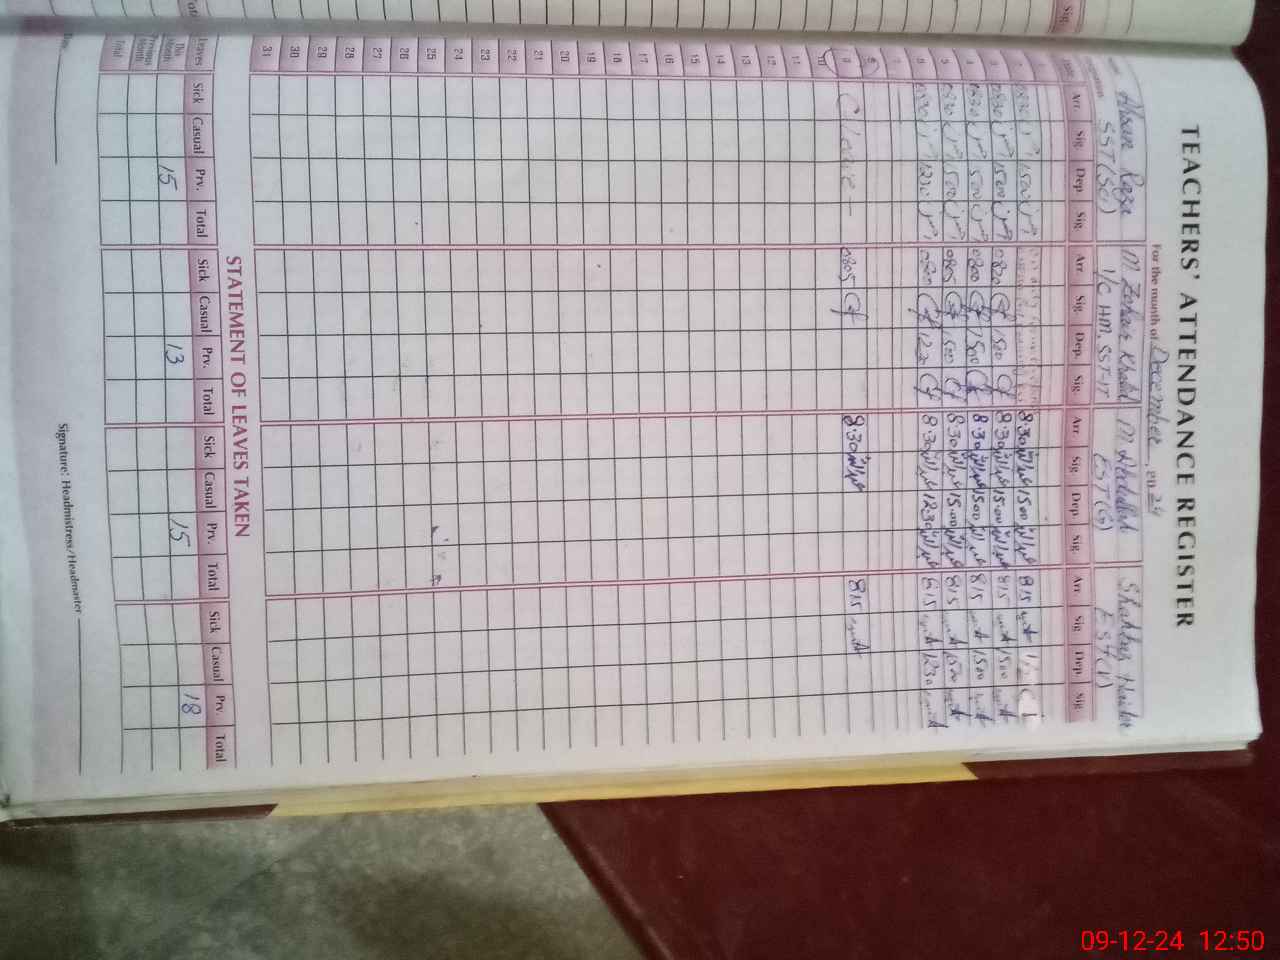 TEACHERS' ATTENDANCE REGISTER
For the month of December, 2024
Ahsan Raza M Zohaib Khalid M Abdullah Shahbaz Haider
SST(Sci) I/C HM, SST-IT EST(G) EST(V)
Date Arr. Sig. Dep. Sig. Arr. Sig. Dep. Sig. Arr. Sig. Dep. Sig. Arr. Sig. Dep. Sig.
1
2 0830 1500 8:30 1500 815
3 0830 1500 0820 1500 8:30 15:00 815 1500
4 0830 1500 0800 1500 8:30 1500 815 1500
5 0830 1500 0805 1500 8:30 15:00 815 1500
6 0830 1230 0800 1230 8:30 1230 815 1230
7
8
9 C/leave - 0805 8:30 815
10
11
12
13
14
15
16
17
18
19
20
21
22
23
24
25
26
27
28
29
30
31
STATEMENT OF LEAVES TAKEN
Leaves Sick Casual Prv. Total Sick Casual Prv. Total Sick Casual Prv. Total Sick Casual Prv. Total
This Month 15 13 15 18
Previous Month
Total
Signature: Headmistress/Headmaster
09-12-24 12:50